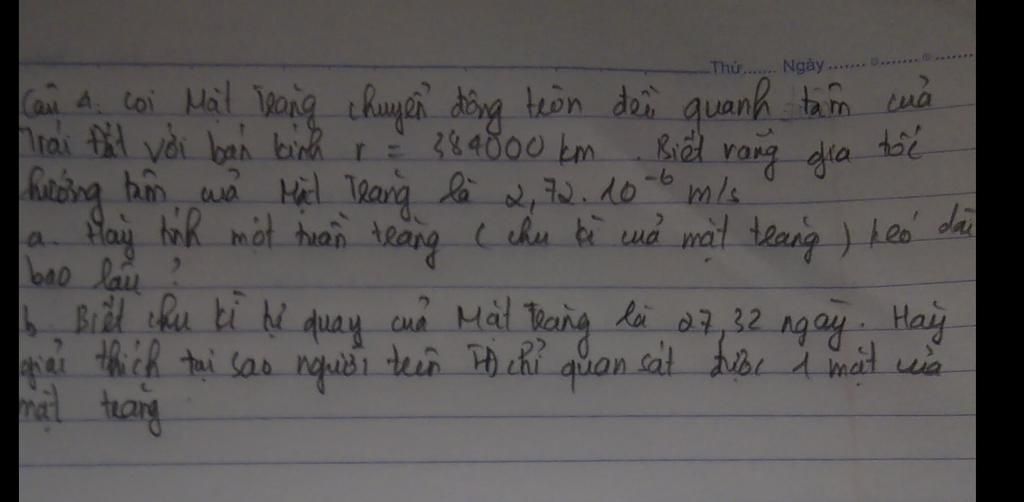 Thứ....... Ngày ....... o ....... o .......
Câu 4. Coi Mặt Trăng chuyển động tròn đều quanh tâm của
Trái Đất với bán kính r = 384000 km. Biết rằng gia tốc
hướng tâm của Mặt Trăng là 2,72.10⁻⁶ m/s
a. Hãy tính một tuần trăng (chu kì của mặt trăng) kéo dài
bao lâu?
b Biết chu kì tự quay của Mặt Trăng là 27,32 ngày. Hãy
giải thích tại sao người trên TĐ chỉ quan sát được 1 mặt của
mặt trăng